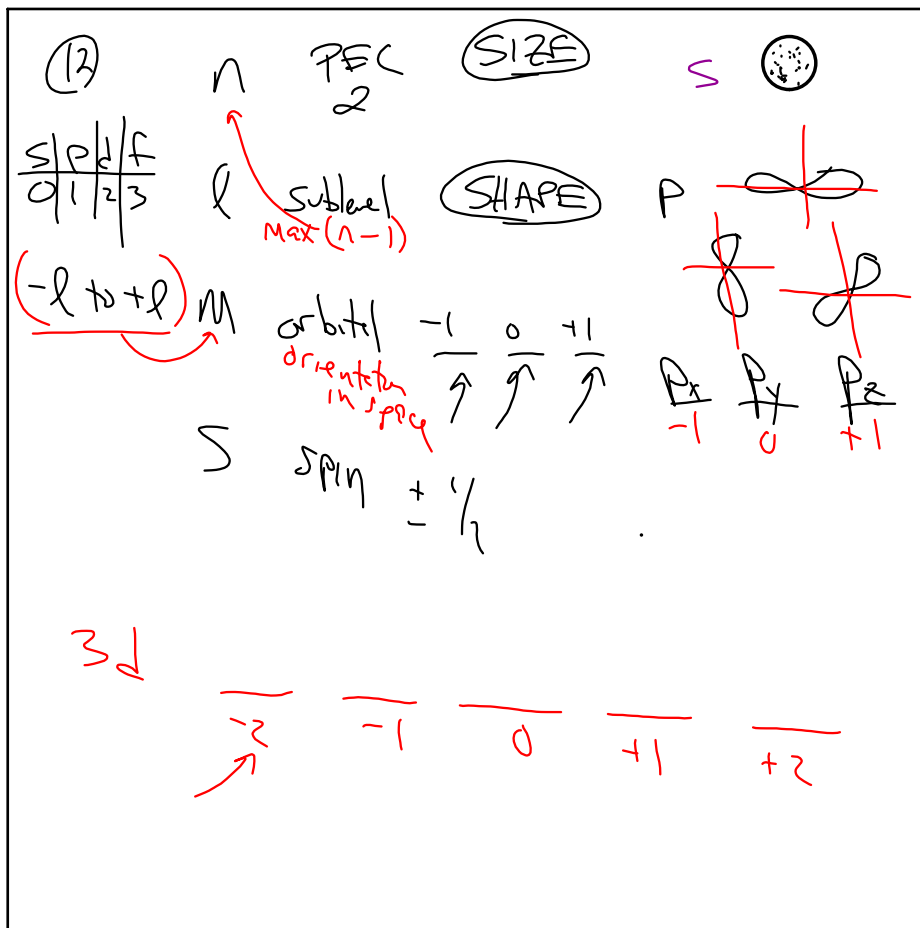 12
n PEC SIZE
2
s
s p d f
0 1 2 3
l sublevel SHAPE
max (n-1)
P
(-l to +l) m orbital -1 0 +1
orientation
in space
Px Py Pz
-1 0 +1
S spin ± 1/2
3d
-2 -1 0 +1 +2